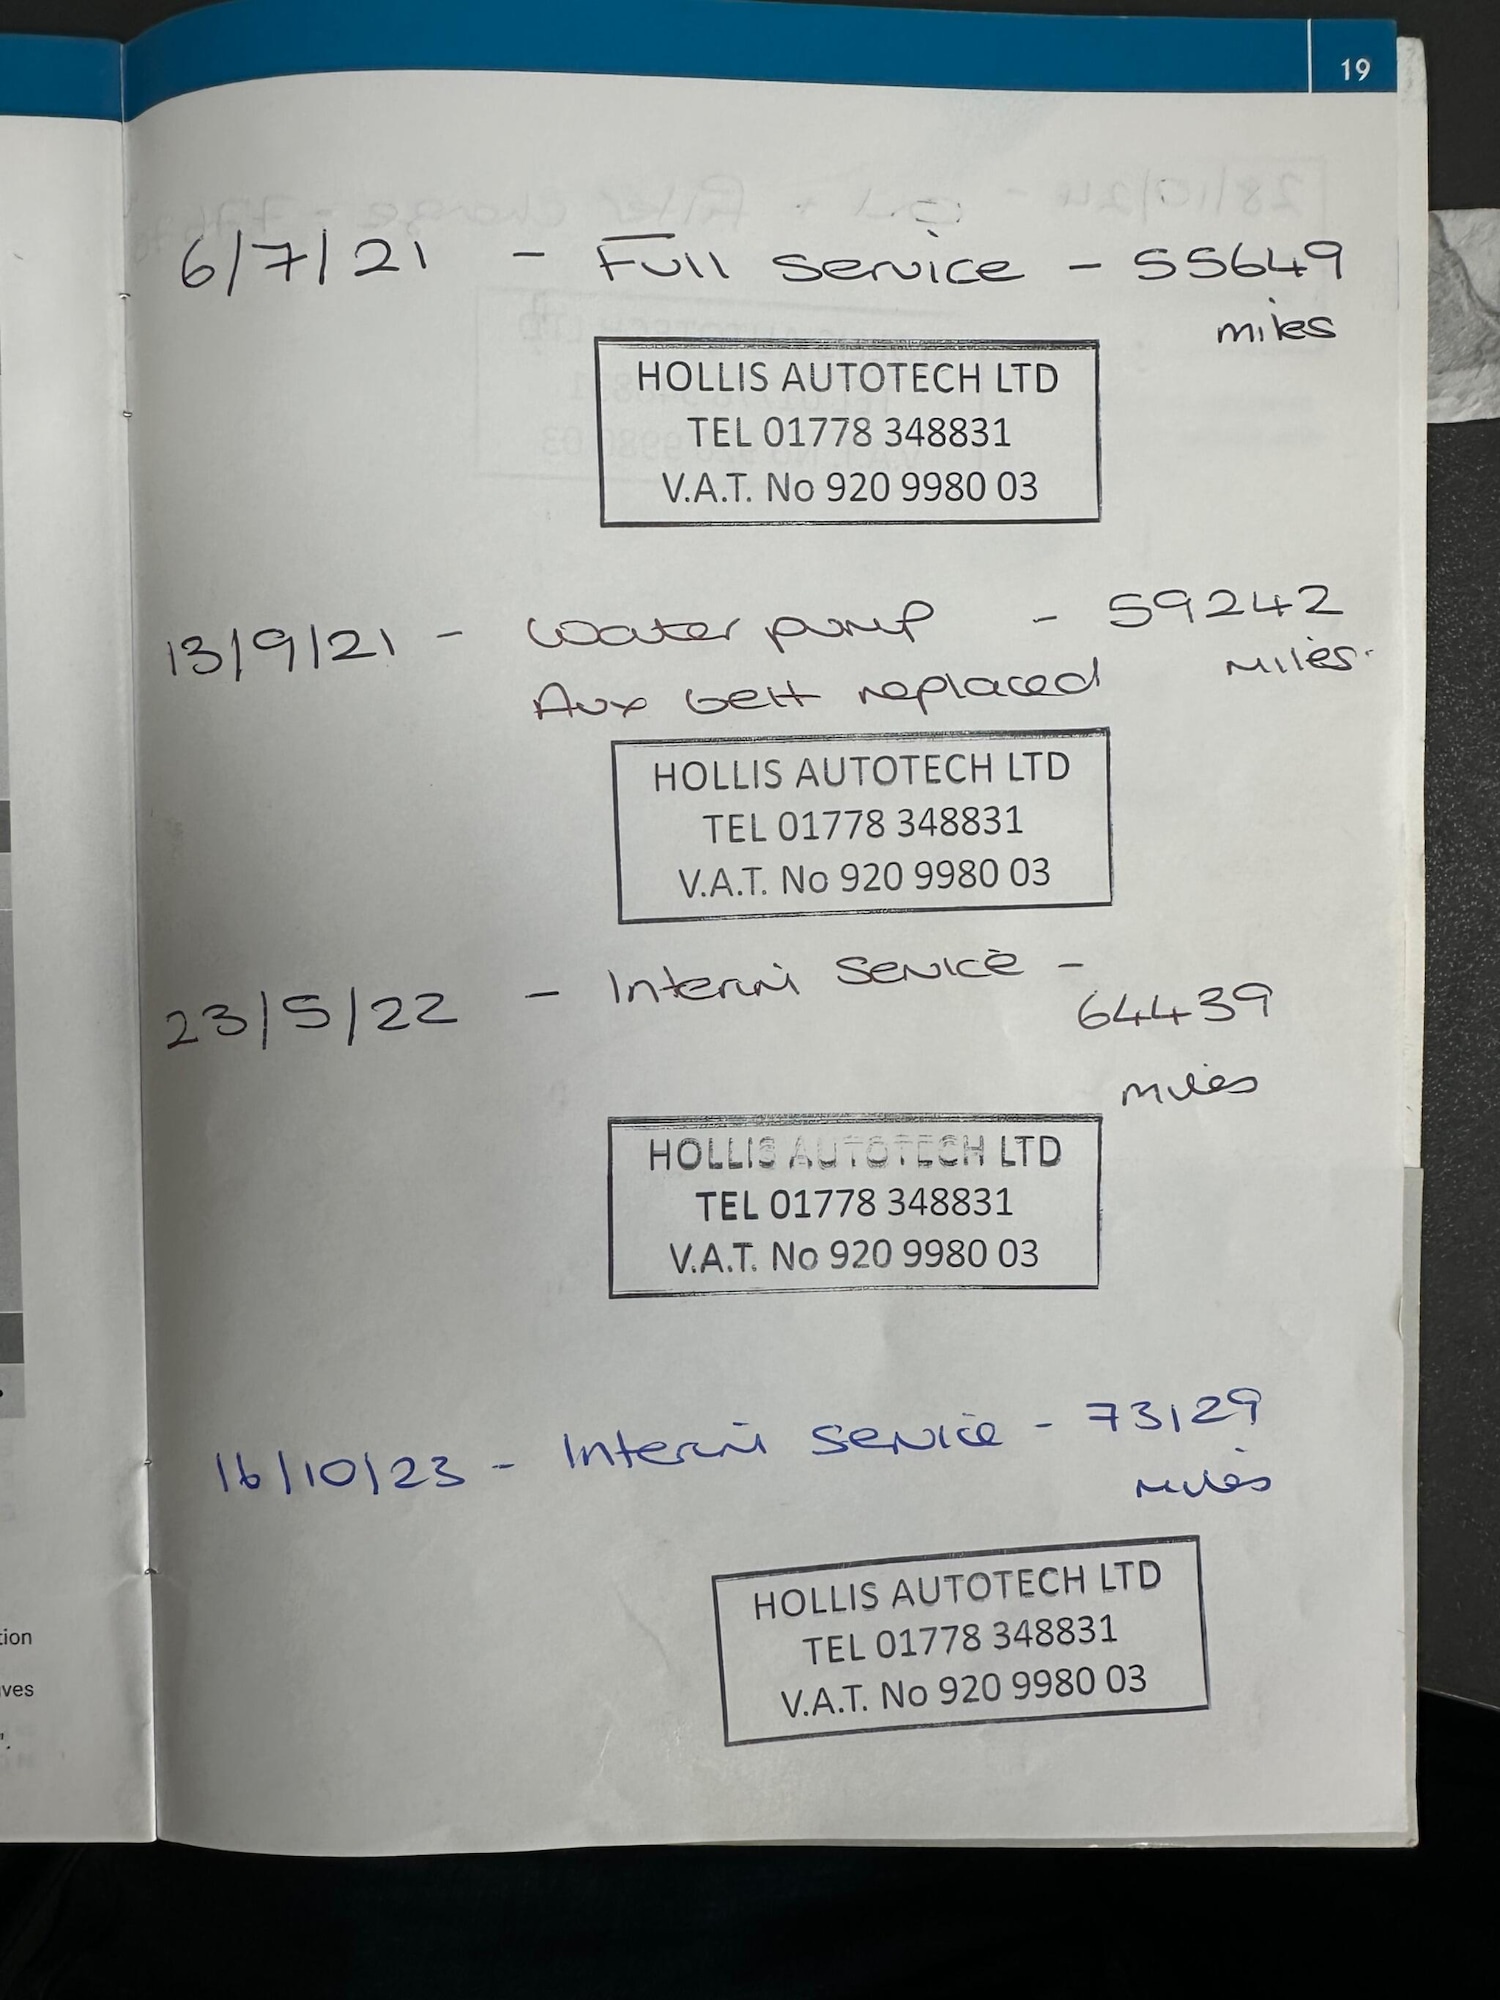 19
6/7/21 - Full service - 55649
miles
HOLLIS AUTOTECH LTD
TEL 01778 348831
V.A.T. No 920 9980 03
13/9/21 - Water pump - 59242
miles.
Aux belt replaced
HOLLIS AUTOTECH LTD
TEL 01778 348831
V.A.T. No 920 9980 03
23/5/22 - Interim service -
64439
miles
HOLLIS AUTOTECH LTD
TEL 01778 348831
V.A.T. No 920 9980 03
16/10/23 - Interim service - 73129
miles
HOLLIS AUTOTECH LTD
TEL 01778 348831
V.A.T. No 920 9980 03
tion
ves